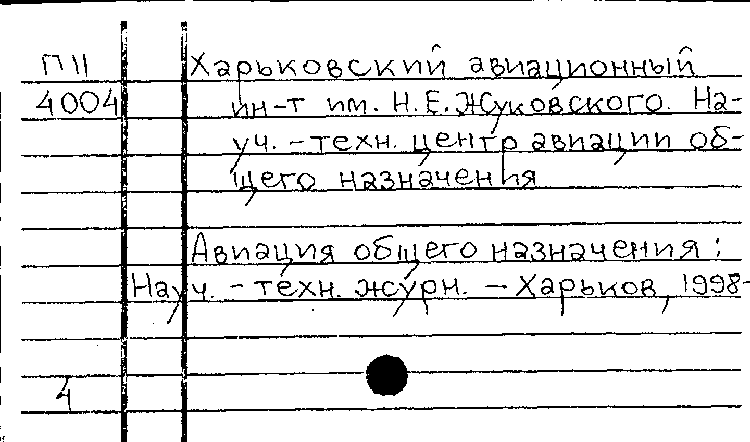 П11 Харьковский авиационный
4004 ин-т им. Н.Е.Жуковского. На-
уч. - техн. центр авиации об-
щего назначения
Авиация общего назначения:
Науч. - техн. журн. - Харьков, 1998-
4